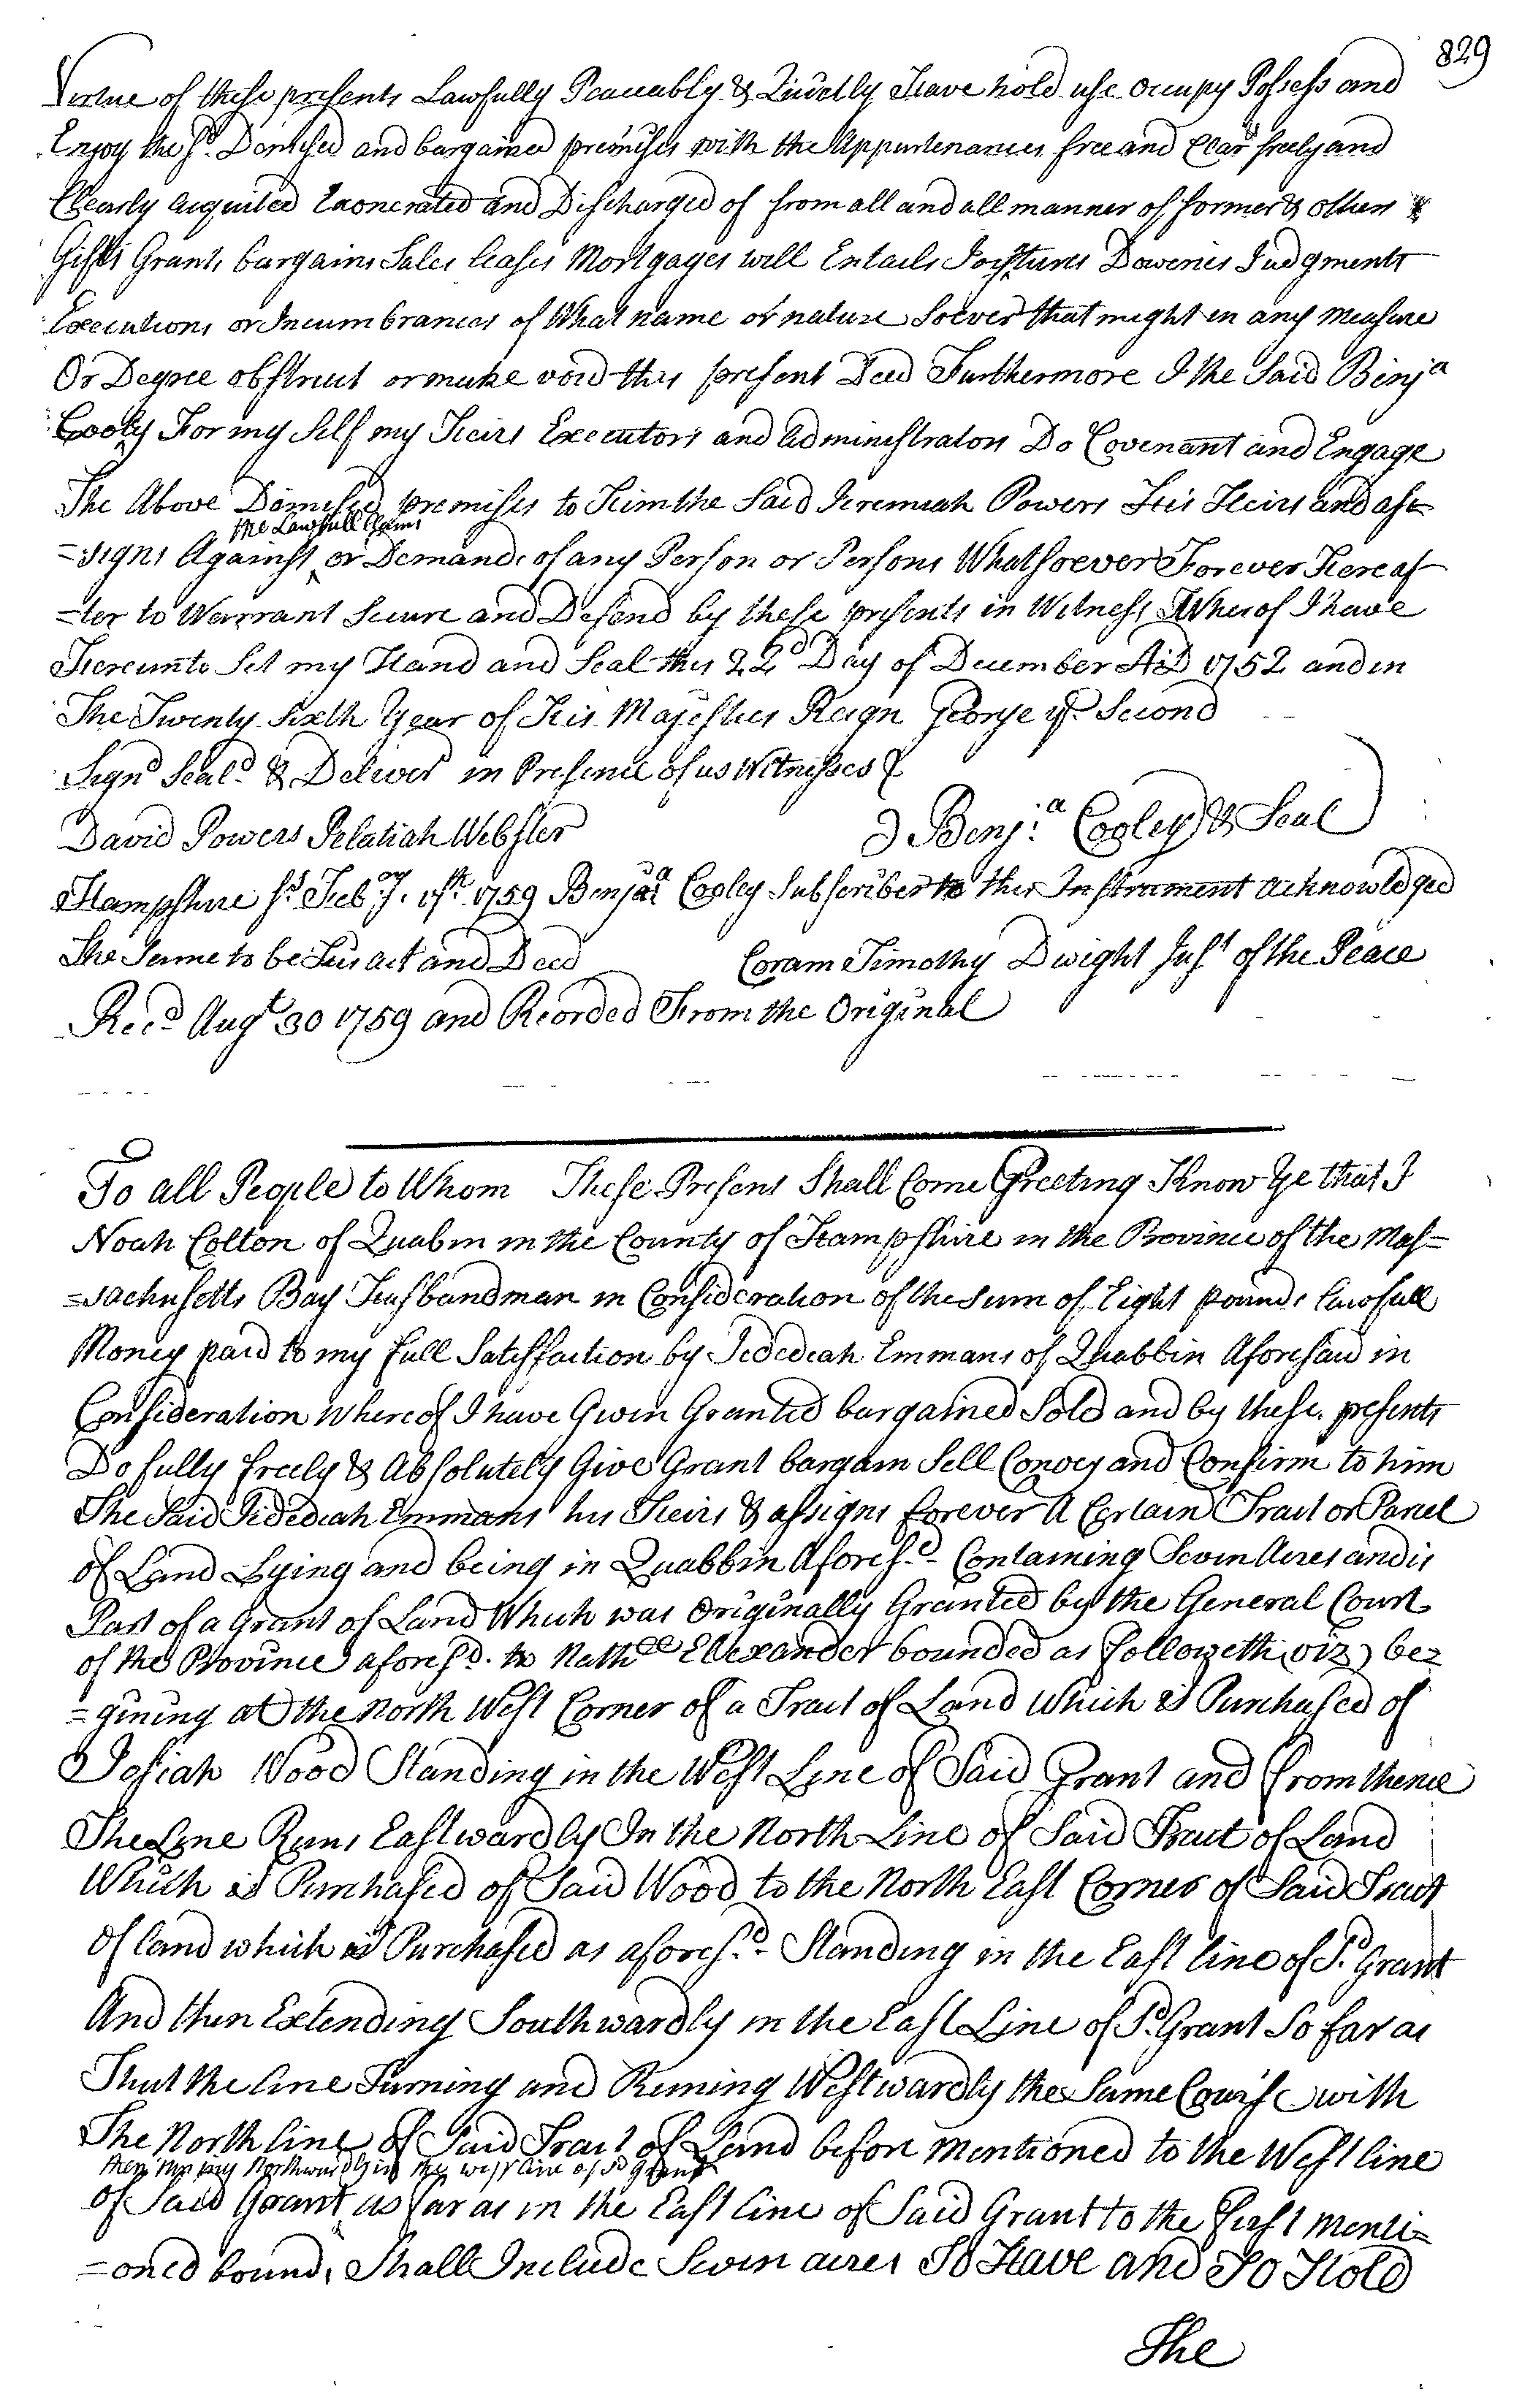 829
Virtue of these presents Lawfully Peaceably & Quietly Have hold use occupy Possess and
Enjoy the sd. Demised and bargained premises with the Appurtenances free and Clear freely and
Clearly acquited Exonerated and Discharged of from all and all manner of former & other
Gifts Grants bargains Sales leases Mortgages will Entails Joytures Doweries Judgments
Executions or Incumbrances of What name or nature Soever that might in any measure
Or Degree obstruct or make void this present Deed Furthermore I the Said Benja
Cooly For my Self my Heirs Executors and administrators Do Covenant and Engage
The Above Demised premises to Him the Said Jeremiah Powers His Heirs and as=
the Lawfull Claims
=signs Against or Demands of any Person or Persons Whatsoever Forever Hereaf
=ter to Warrant Secure and Defend by these presents in Witness Wherof I have
Hereunto Set my Hand and Seal this 22d Day of December AD 1752 and in
The Twenty Sixth Year of His Majesties Reign George ye Second
Signd Seald & Deliverd in Presence of us Witnesses
David Powers Pelatiah Webster Benja Cooley & Seal
Hampshire ss Feby. 1st. 1759 Benja Cooley Subscriber to this Instrument acknowledged
The Same to be His act and Deed Coram Timothy Dwight Just of the Peace
Recd Augt 30 1759 and Recorded From the Original
To all People to Whom These Presens Shall Come Greeting Know Ye that I
Noah Colton of Quabin in the County of Hampshire in the Province of the Mas=
=sachusetts Bay Husbandman in Consideration of the Sum of Eight pounds lawfull
Money paid to my full Satisfaction by Jedediah Emmans of Quabbin Aforesaid in
Consideration Whereof I have Given Granted bargained Sold and by these presents
Do fully freely & Absolutely Give Grant bargain Sell Convey and Confirm to him
The Said Jedediah Emmans his Heirs & assigns forever A Certain Tract or Parcel
of Land Lying and being in Quabbin Aforesd. Containing Seven Acres and is
Part of a Grant of Land Which was Originally Granted by the General Court
of the Province aforesd. to Nathll Ellexander bounded as followeth (viz) be=
=gining at the North West Corner of a Tract of Land Which is Purchased of
Josiah Wood Standing in the West Line of Said Grant and from thence
The Line Runs Eastwardly In the North Line of Said Tract of Land
Which is Purchased of Said Wood to the North East Corner of Said Tract
of land which is Purchased as aforesd. Standing in the East line of Sd. Grant
And then Extending Southwardly in the East Line of Sd. Grant So far as
That the line Turning and Runing Westwardly the Same Course with
The North line of Said Tract of Land before mentioned to the West line
then runing Northwardly in the west line of sd grant
of Said Grant as far as in the East line of Said Grant to the first menti=
=oned bounds Shall Include Seven acres To Have and To Hold
The